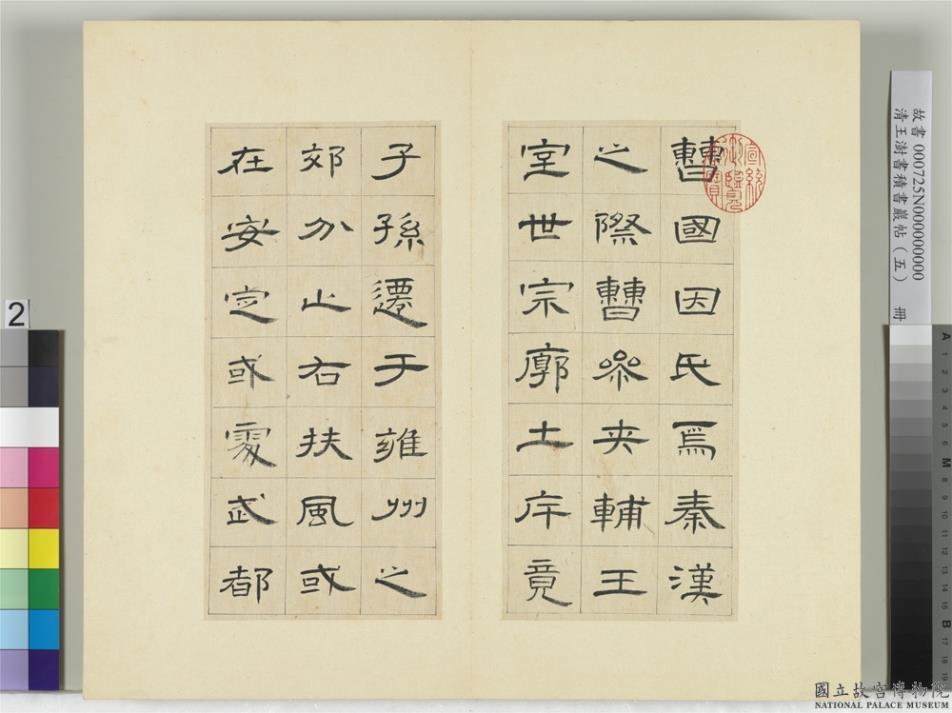 曹國因氏焉秦漢
之際曹參夾輔王
室世宗廓土斥竟
子孫遷于雍州之
郊分止右扶風或
在安定或處武都
宣統御覽之寶
故書 000725N000000000
清王澍書積書巖帖（五） 冊
2
國立故宮博物院
NATIONAL PALACE MUSEUM